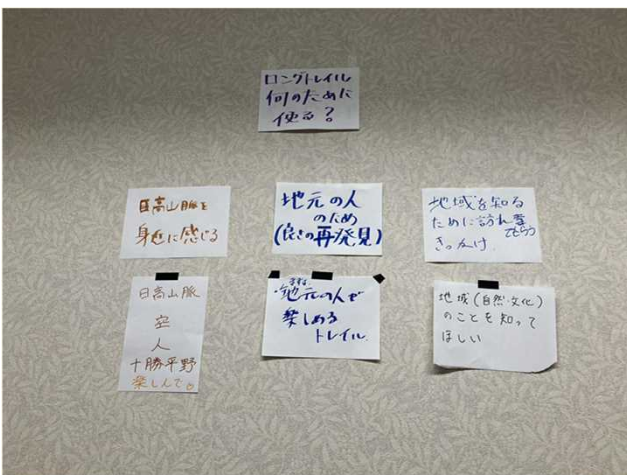 ロングトレイル
何のために
使う？
日高山脈を
身近に感じる
地元の人
のため
(良さの再発見)
地域を知る
ために訪れ
てもらう
きっかけ
日高山脈
空
人
十勝平野
楽しんで。
まずは
地元の人が
楽しめる
トレイル
地域(自然・文化)
のことを知って
ほしい